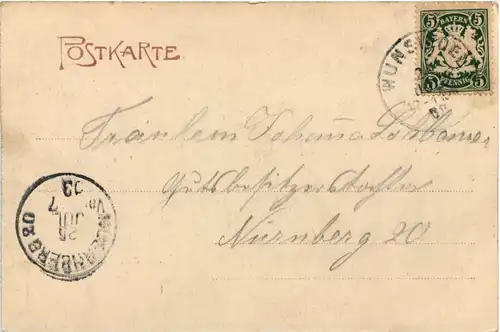 POSTKARTE
5 BAYERN 5
PFENNIG
WUNS
Fräulein
Gutsbesitzerstochter
Nürnberg 20
NÜRNBERG 20
25
JUL
7
03